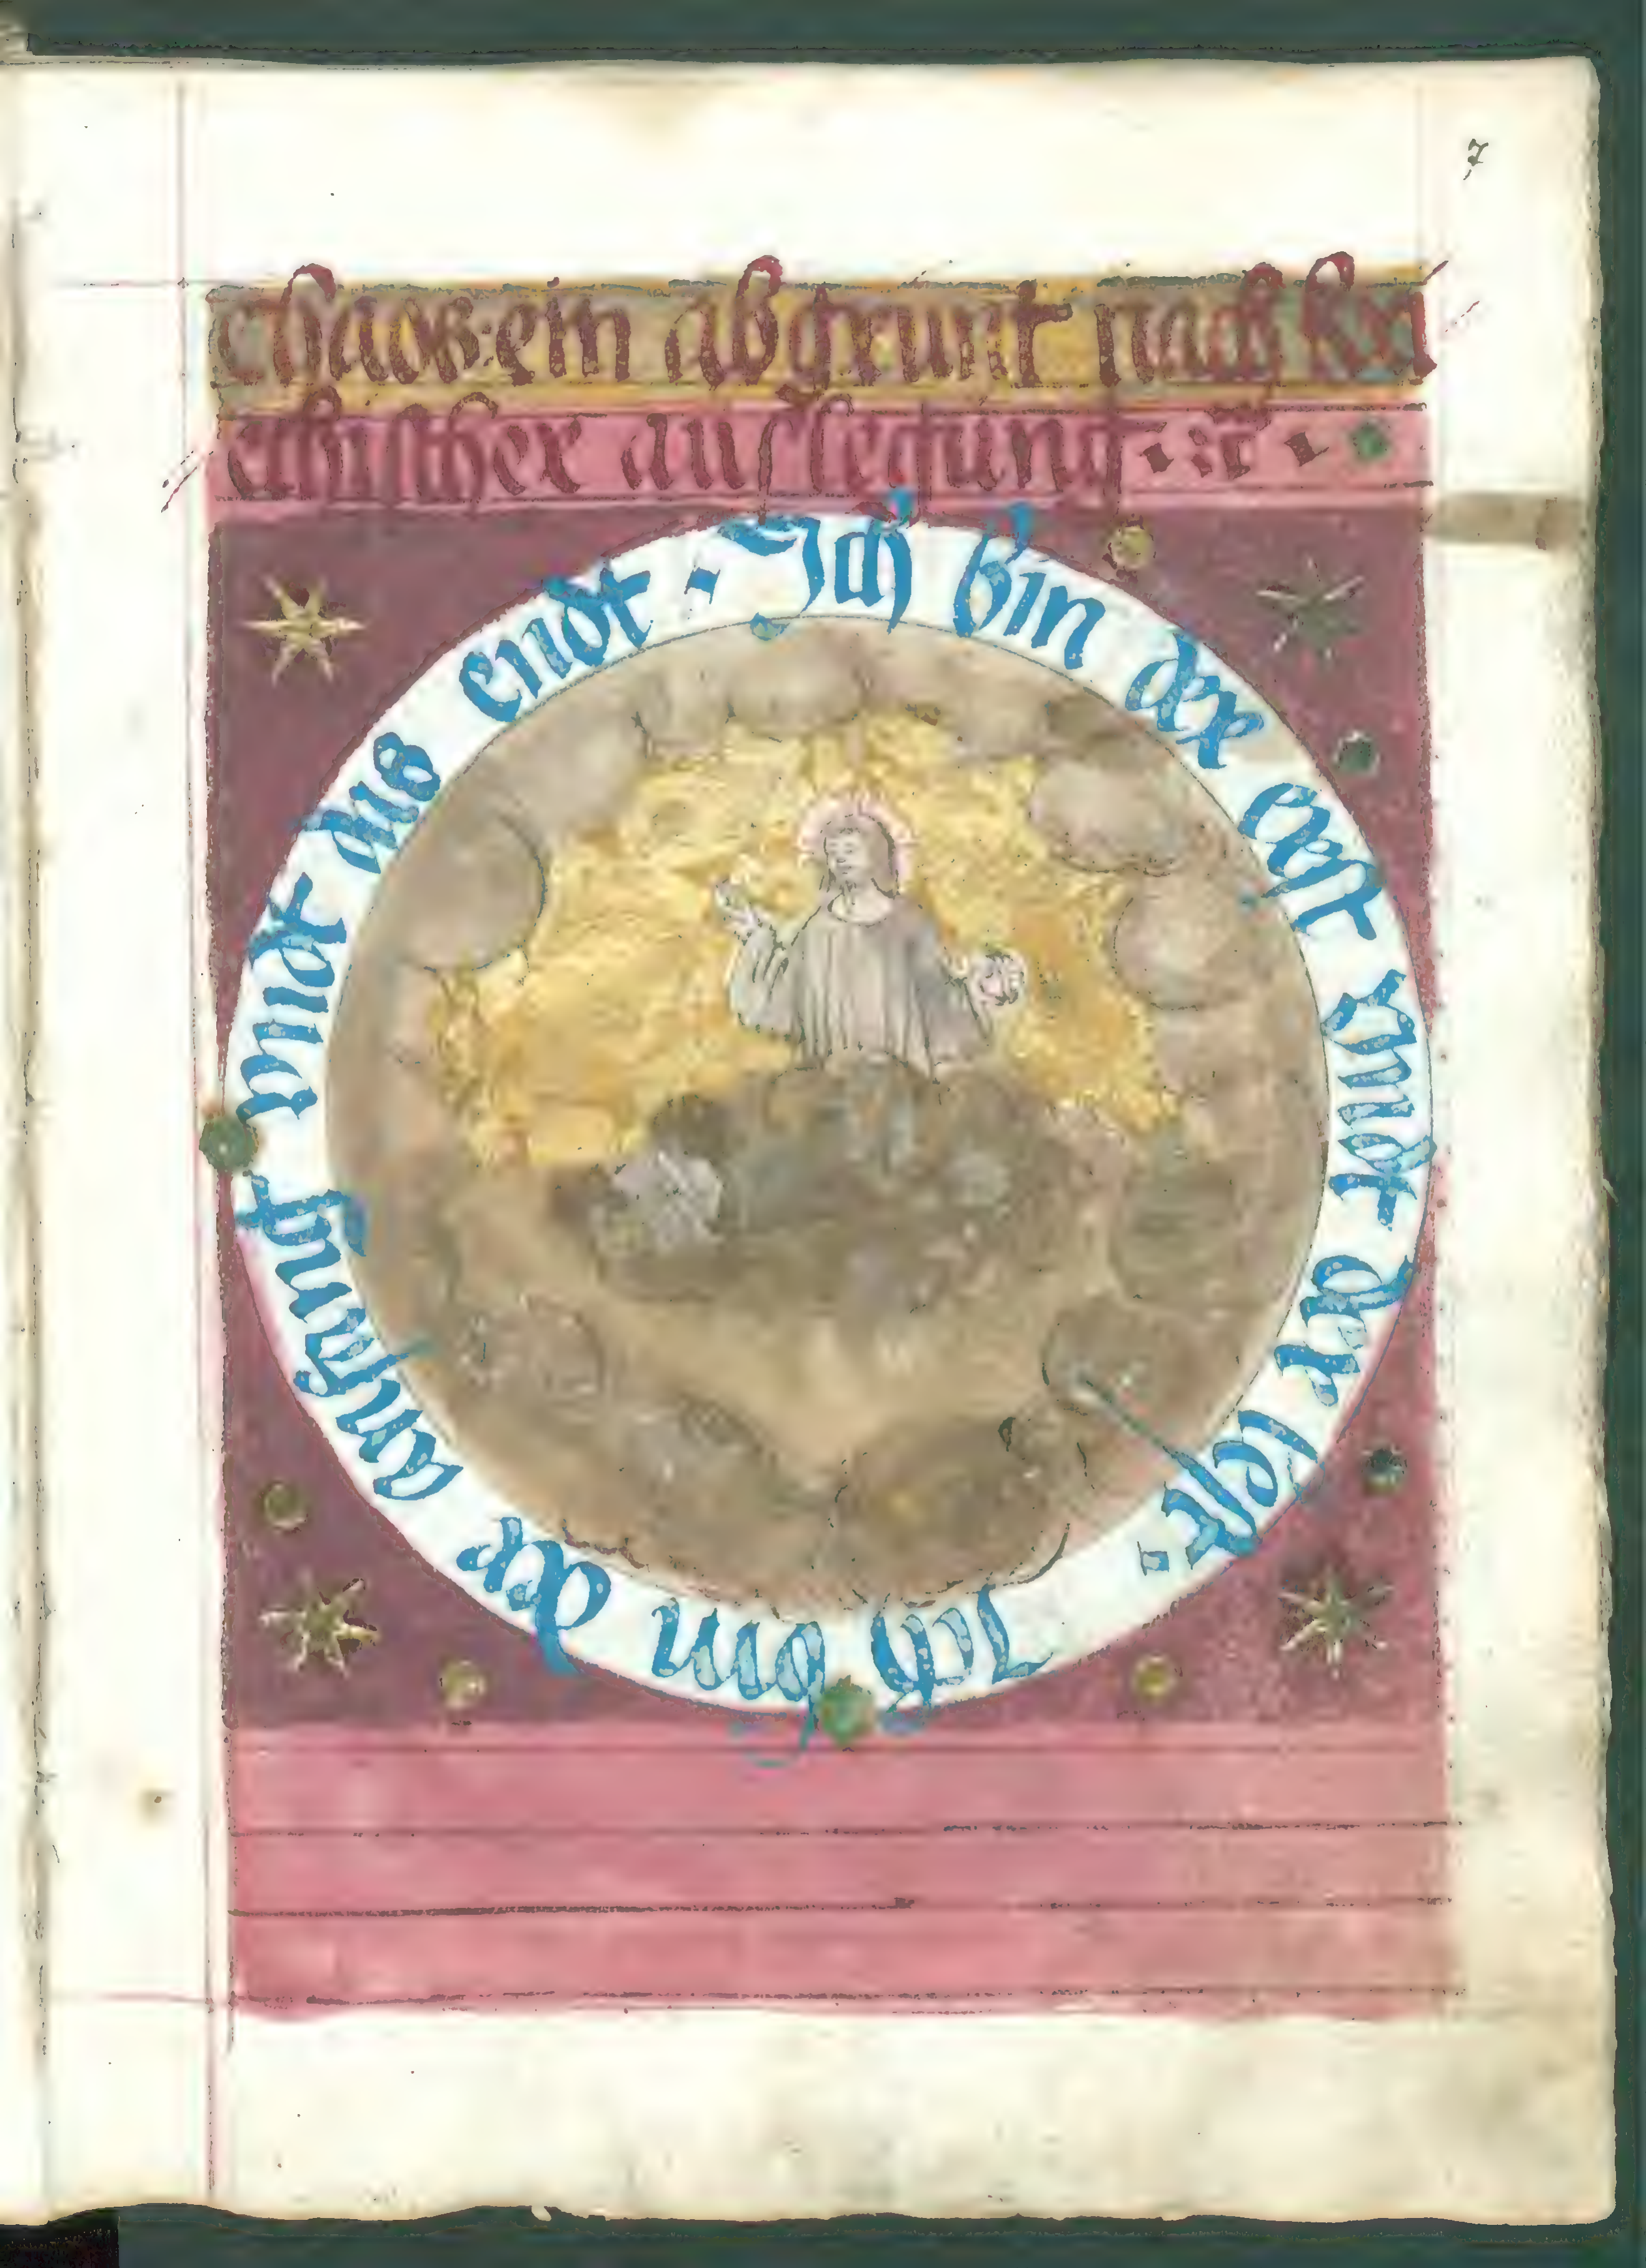 7
chaos·ein abgrunt nach kri
echischer auslegung · ꝛc̃ ·
Ich bin der erst vnndt der lest · Ich bin der anfangk vnndt das endt ·